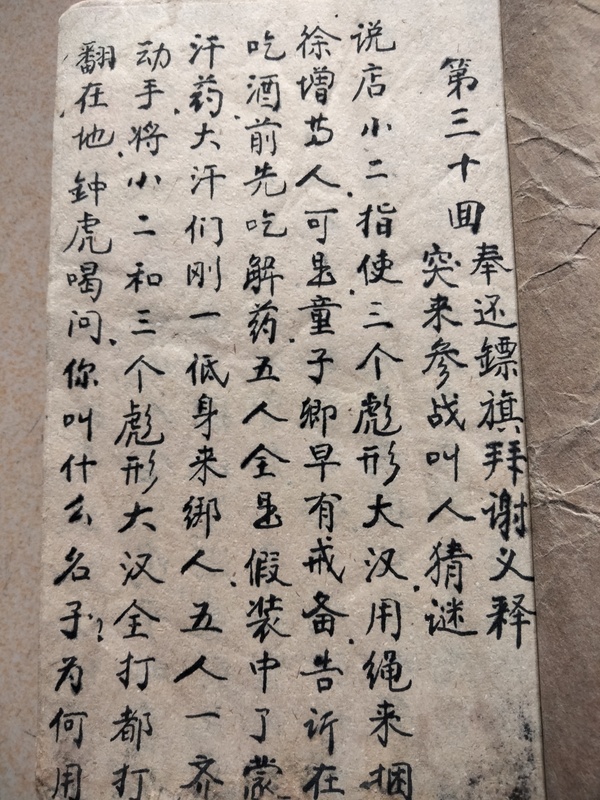 第三十回
奉还鏢旗拜谢义释
突来参战叫人猜谜
说店小二指使三个彪形大汉用绳来捆
徐增为人可是童子卿早有戒备告訴在
吃酒前先吃解药五人全是假装中了蒙
汗药大汗们刚一低身来绑人五人一齐
动手将小二和三个彪形大汉全打都打
翻在地钟虎喝问你叫什么名子?为何用